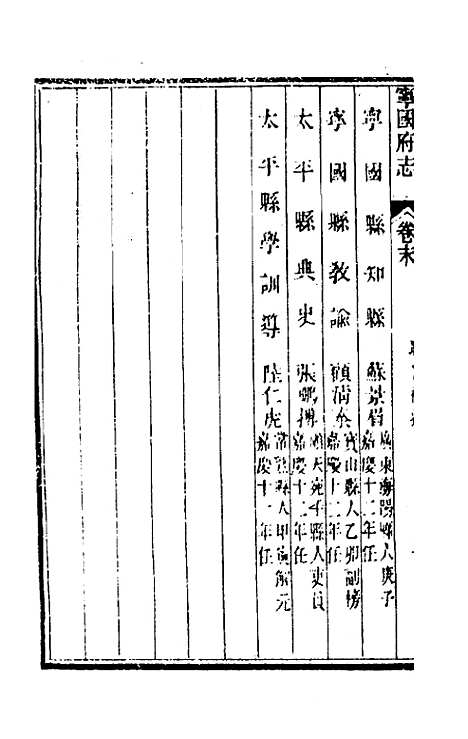 寧國府志
卷末
寧國縣知縣
蘇景眉
廣東海陽縣人庚子
嘉慶十二年任
寧國縣教諭
寶山縣人乙卯副榜
嘉慶十二年任
太平縣典史
張鵬摶
順天宛平縣人吏員
嘉慶十二年任
太平縣學訓導
陸仁虎
常熟縣人甲寅解元
嘉慶十一年任